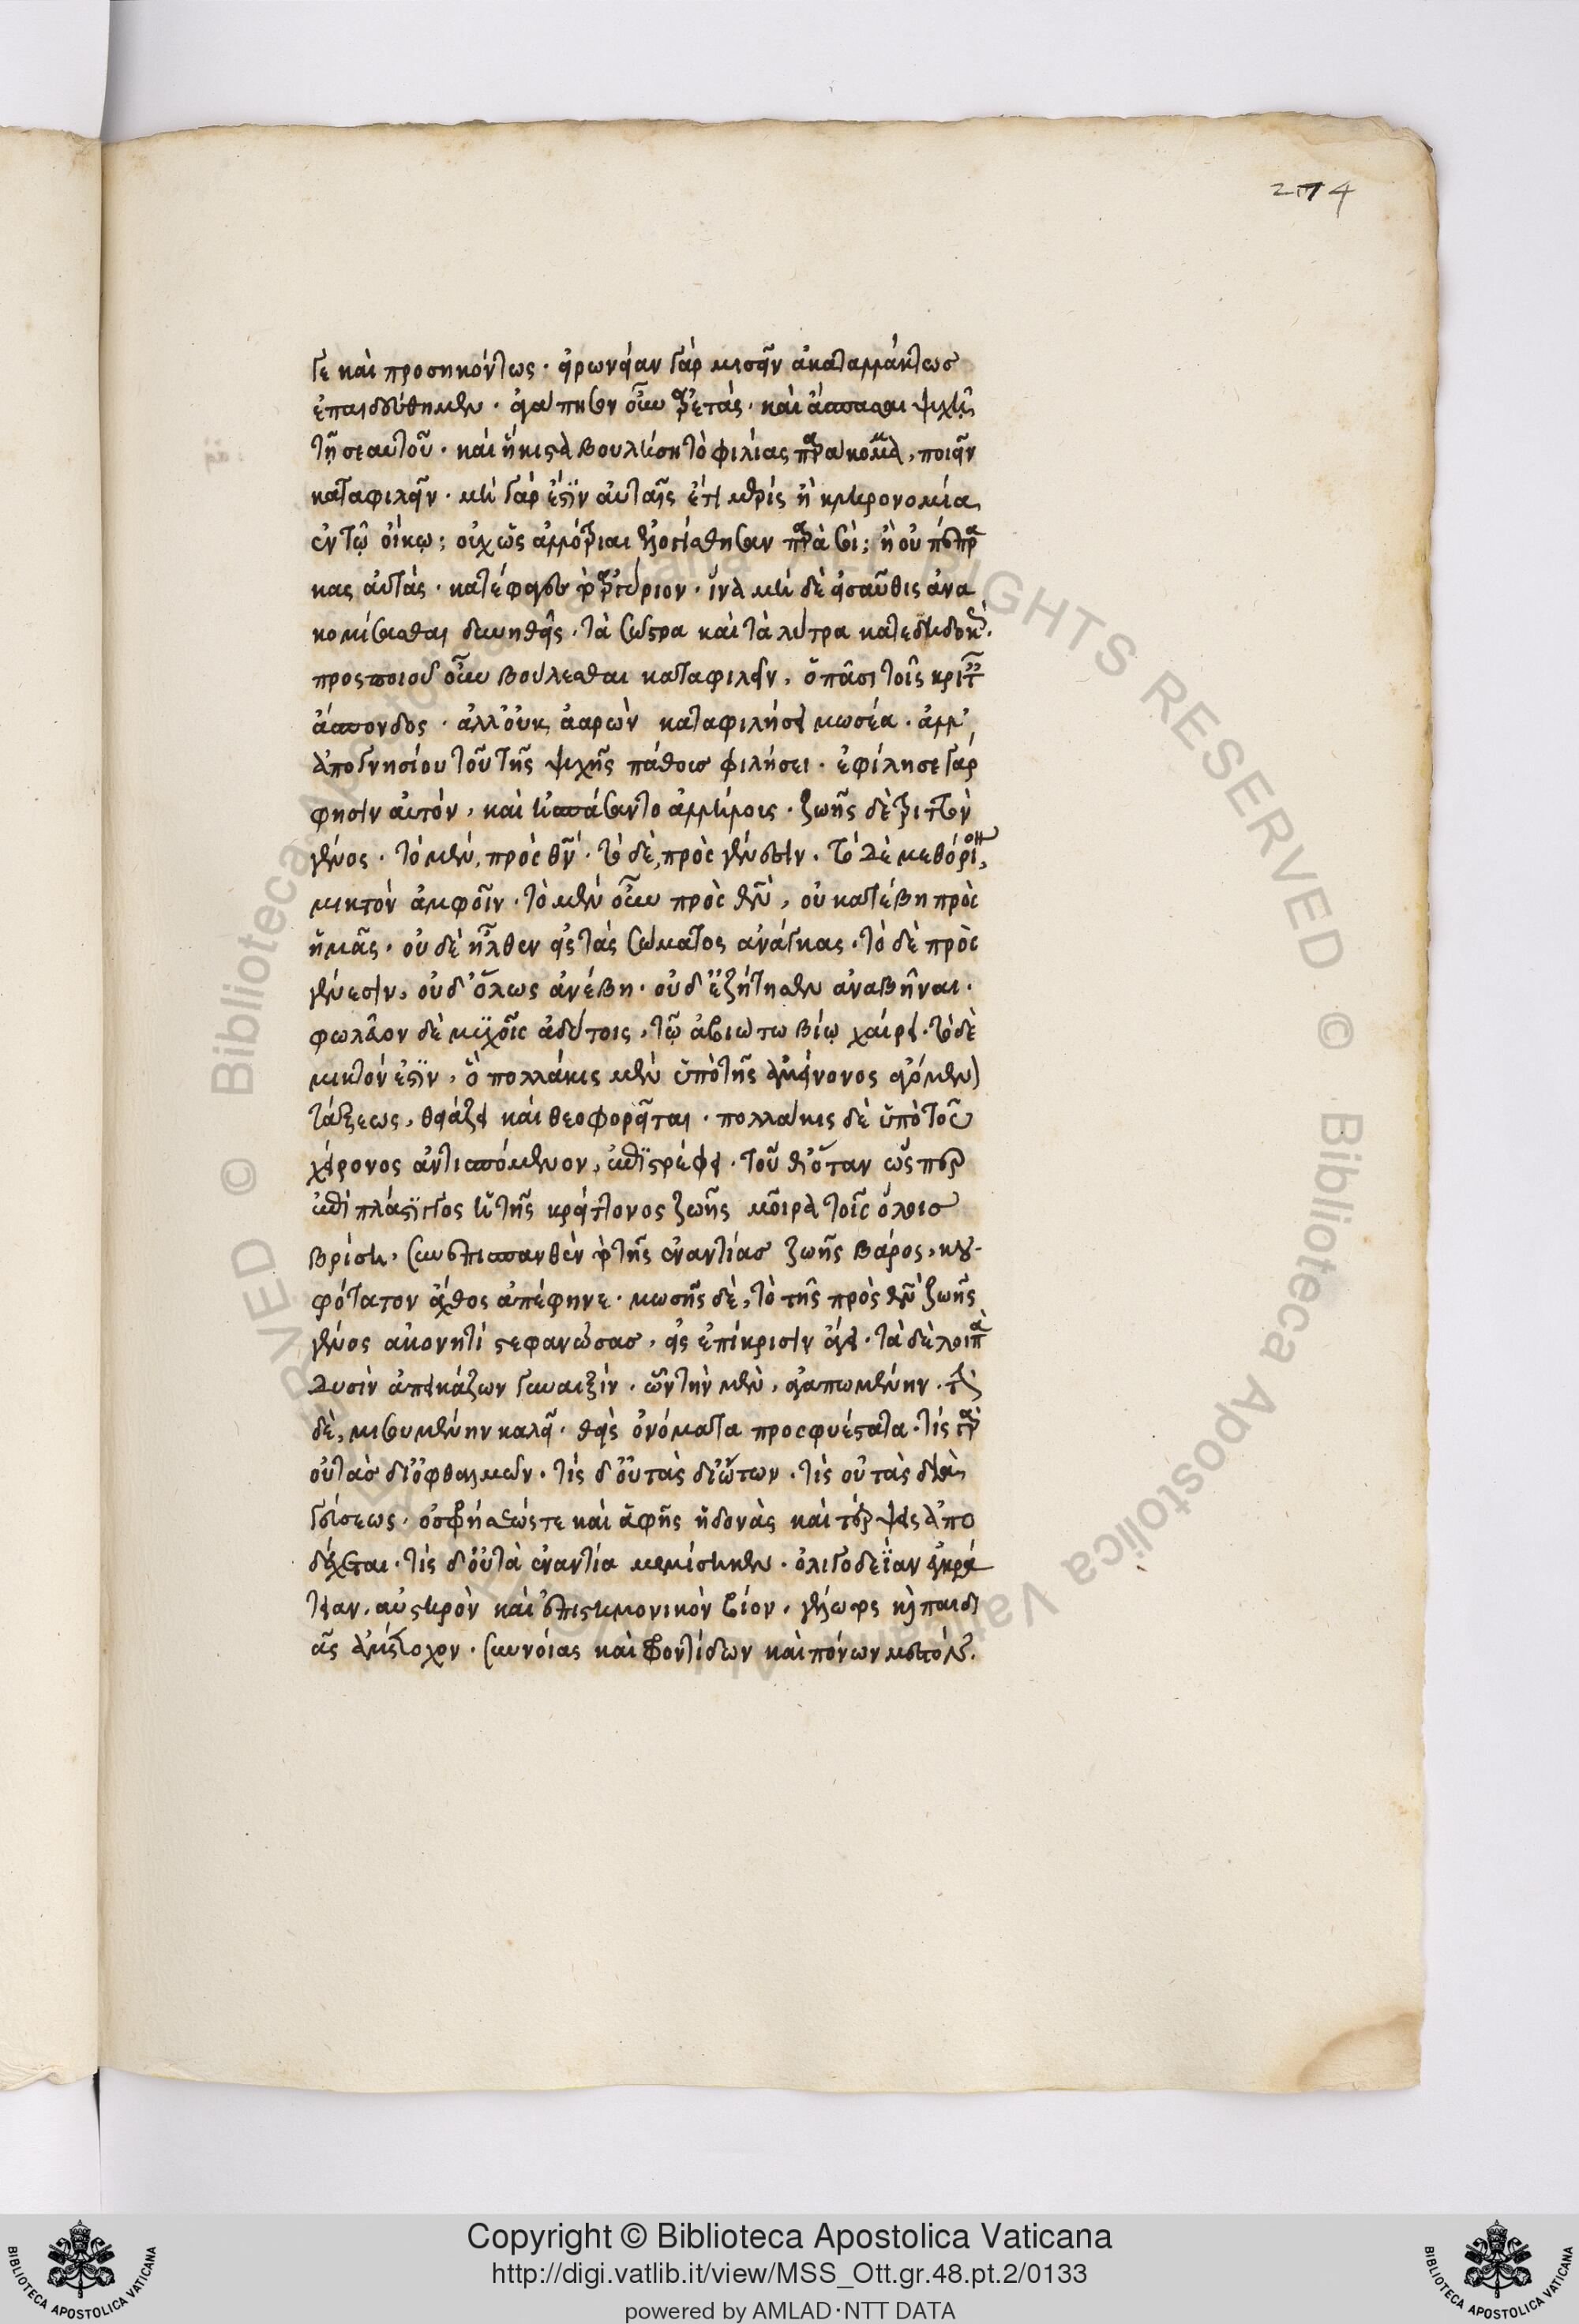 274
γε καὶ προσηκόντως· εἰρωνείαν γὰρ μισεῖν ἀκαταλλάκτως
ἐπαιδεύθημεν· ἀγάπησον οὖν ἀρετάς· καὶ ἄσπασαι ψυχῇ
τῇ σεαυτοῦ· καὶ ἥκιστα βουλήση τὸ φιλίας παράκομμα, ποιεῖν
καταφιλεῖν· μὴ γάρ ἐστιν αὐταῖς ἔτι μερὶς ἢ κληρονομία
ἐν τῷ οἴκῳ; οὐχ ὡς ἀλλότριαι ἐλογίσθησαν παρὰ σοί; ἢ οὐ πέπρα
κας αὐτάς· κατέφαγες τὸ ἀργύριον· ἵνα μὴ δὲ εἰσαῦθις ἀνα
κομίσασθαι δυνηθῇς· τὰ σῶστρα καὶ τὰ λύτρα κατεδηδοκώς·
προσποιοῦ οὖν βούλεσθαι καταφιλεῖν, ὁ πᾶσι τοῖς κριταῖς
ἄσπονδος· ἀλλ' οὐκ ἀαρὼν καταφιλήσει μωσέα· ἀλλ'
ἀπὸ γνησίου τοῦ τῆς ψυχῆς πάθους φιλήσει· ἐφίλησε γάρ
φησιν αὐτόν, καὶ ἠσπάσαντο ἀλλήλους· ζωῆς δὲ τριττὸν
γένος· τὸ μὲν, πρὸς θν· τὸ δὲ, πρὸς γένεσιν· τὸ δὲ μεθόριον,
μικτὸν ἀμφοῖν· τὸ μὲν οὖν πρὸς θν, οὐ κατέβη πρὸς
ἡμᾶς· οὐδὲ ἦλθεν εἰς τὰς σώματος ἀνάγκας· τὸ δὲ πρὸς
γένεσιν, οὐδ' ὅλως ἀνέβη· οὐδ' ἐζήτησεν ἀναβῆναι·
φωλεῦον δὲ μυχοῖς ἀδύτοις, τῷ ἀβιώτω βίῳ χαίρει· τὸ δὲ
μικτόν ἐστιν, ὃ πολλάκις μὲν ὑπὸ τῆς ἀμείνονος ἀγόμενον
τάξεως, θειάζει καὶ θεοφορεῖται· πολλάκις δὲ ὑπὸ τοῦ
χείρονος ἀντισπώμενον, ἐπιστρέφει· τοῦθ' ὅταν ὥσπερ
ἐπὶ πλάστιγγος ἡ τῆς κρείττονος ζωῆς μοῖρα τοῖς ὅλοις
βρίση, συνεπισπασθὲν τὸ τῆς ἐναντίας ζωῆς βάρος, κου-
φότατον ἄχθος ἀπέφηνε· μωσῆς δὲ, τὸ τῆς πρὸς θν ζωῆς
γένος ἀκονητὶ στεφανώσας, εἰς ἐπίκρισιν ἄγει· τὰ δὲ λοιπὰ
δυσὶν ἀπεικάζων γυναιξίν· ὧν τὴν μὲν, ἀγαπωμένην· τὴν
δὲ, μισουμένην καλεῖ· θεὶς ὀνόματα προσφυέστατα· τίς γὰρ
οὐ τὰς δι' ὀφθαλμῶν· τίς δ' οὐ τὰς δι' ὤτων· τίς οὐ τὰς διὰ
γεύσεως· ὀσφρήσεώς τε καὶ ἁφῆς ἡδονὰς καὶ τέρψεις ἀπο
δέχεται· τίς δ' οὐ τὰ ἐναντία μεμίσηκεν· ὀλιγοδείαν ἐγκρά
τειαν, αὐστηρὸν καὶ ἐπιστημονικὸν βίον, γέλωτος καὶ παιδι
ᾶς ἀμέτοχον· συννοίας καὶ φροντίδων καὶ πόνων μεστὸν·
Copyright © Biblioteca Apostolica Vaticana
http://digi.vatlib.it/view/MSS_Ott.gr.48.pt.2/0133
powered by AMLAD·NTT DATA